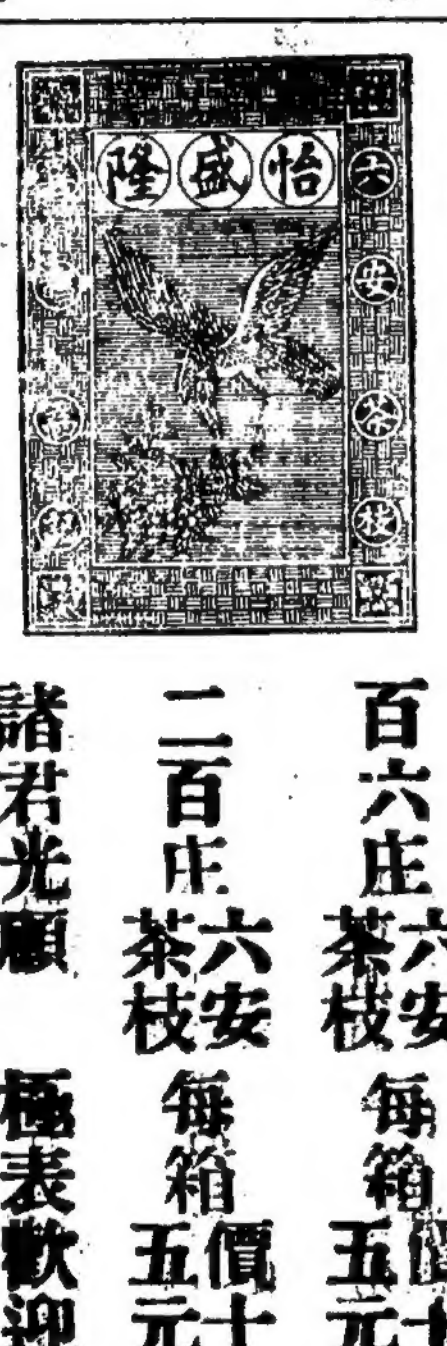 怡盛隆
六安茶枝
百六庄六安茶枝每箱價十五元
二百庄六安茶枝每箱價十五元
諸君光顧 極表歡迎